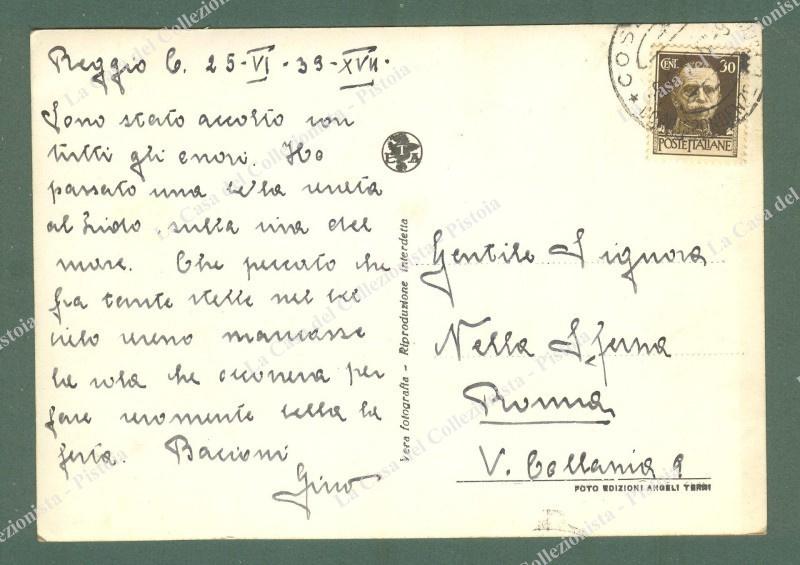 Reggio C. 25-VI-39-XVII.
Sono stato accolto con
tutti gli onori. Ho
passato una bella serata
al Lido sulla riva del
mare. Che peccato che
fra tante stelle nel bel
cielo sereno mancasse
la sola che occorreva per
fare veramente bella la
festa. Bacioni
Gino
E T A
Vera fotografia - Riproduzione interdetta
COS
CENT. 30
POSTE ITALIANE
Gentile Signora
Nella Sferna
Roma
V. Collania 9
FOTO EDIZIONI ANGELI TERNI
La Casa del Collezionista - Pistoia